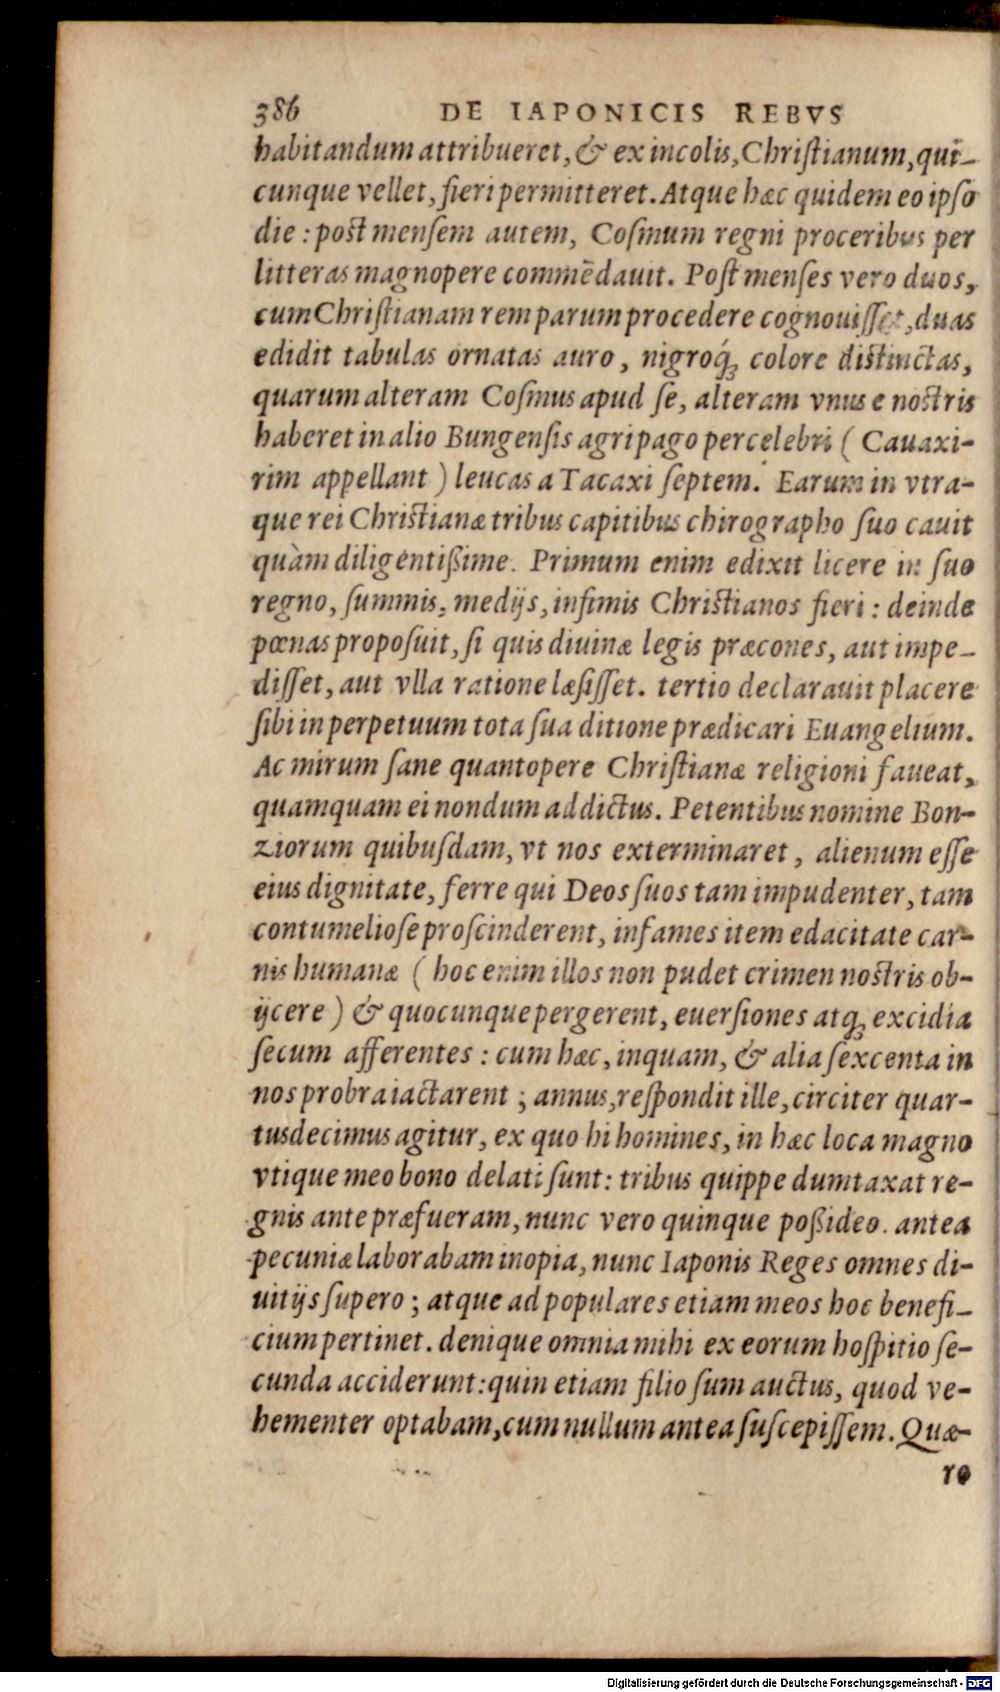 386 DE IAPONICIS REBVS
habitandum attribueret, & ex incolis, Christianum, qui-
cunque vellet, fieri permitteret. Atque hæc quidem eo ipso
die : post mensem autem, Cosmum regni proceribus per
litteras magnopere commēdauit. Post menses vero duos,
cum Christianam rem parum procedere cognouisset, duas
edidit tabulas ornatas auro, nigroq́ꝫ colore distinctas,
quarum alteram Cosmus apud se, alteram vnus e nostris
haberet in alio Bungensis agri pago percelebri ( Cauaxi-
rim appellant ) leucas a Tacaxi septem. Earum in vtra-
que rei Christianæ tribus capitibus chirographo suo cauit
quàm diligentißime. Primum enim edixit licere in suo
regno, summis, medijs, infimis Christianos fieri : deinde
pœnas proposuit, si quis diuinæ legis præcones, aut impe-
disset, aut vlla ratione læsisset. tertio declarauit placere
sibi in perpetuum tota sua ditione prædicari Euangelium.
Ac mirum sane quantopere Christianæ religioni faueat,
quamquam ei nondum addictus. Petentibus nomine Bon-
ziorum quibusdam, vt nos exterminaret, alienum esse
eius dignitate, ferre qui Deos suos tam impudenter, tam
contumeliose proscinderent, infames item edacitate car-
nis humanæ ( hoc enim illos non pudet crimen nostris ob-
ijcere ) & quocunque pergerent, euersiones atqꝫ excidia
secum afferentes : cum hæc, inquam, & alia sexcenta in
nos probra iactarent ; annus, respondit ille, circiter quar-
tusdecimus agitur, ex quo hi homines, in hæc loca magno
vtique meo bono delati sunt: tribus quippe dumtaxat re-
gnis ante præfueram, nunc vero quinque poßideo. antea
pecuniæ laborabam inopia, nunc Iaponis Reges omnes di-
uitijs supero ; atque ad populares etiam meos hoc benefi-
cium pertinet. denique omnia mihi ex eorum hospitio se-
cunda acciderunt: quin etiam filio sum auctus, quod ve-
hementer optabam, cum nullum antea suscepissem. Quæ-
ro
Digitalisierung gefördert durch die Deutsche Forschungsgemeinschaft - DFG